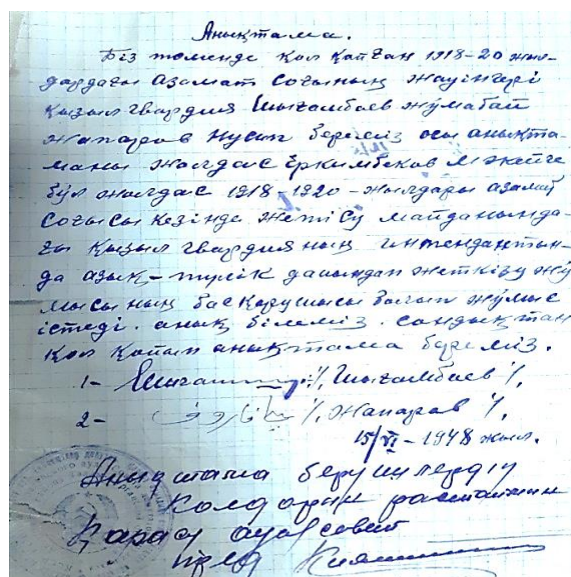 Анықтама.
Біз төменде қол қойған 1918-20 жыл-
дардағы азамат соғының жауінгері
қызыл гвардия Шығамбаев Жұмабай
Жапаров Нүсіп береміз осы анықта-
маны жолдас Еркимбеков
бұл жолдас 1918-1920-жылдары азамат
соғысы кезінде Жетісу майданында-
ғы қызыл гвардияның интендантын-
да азық-түлік дайындап жеткізу жұ
мысының басқарушысы болып жұмыс
істеді. анық білеміз. сондықтан
қол қойып анықтама береміз.
1- /. Шығамбаев /.
2- جاپاروف /. Жапаров /.
15/VI-1948 жыл.
Анықтама берушілердің
қолдарын растаймын
Қарасу ауылсовет
пред